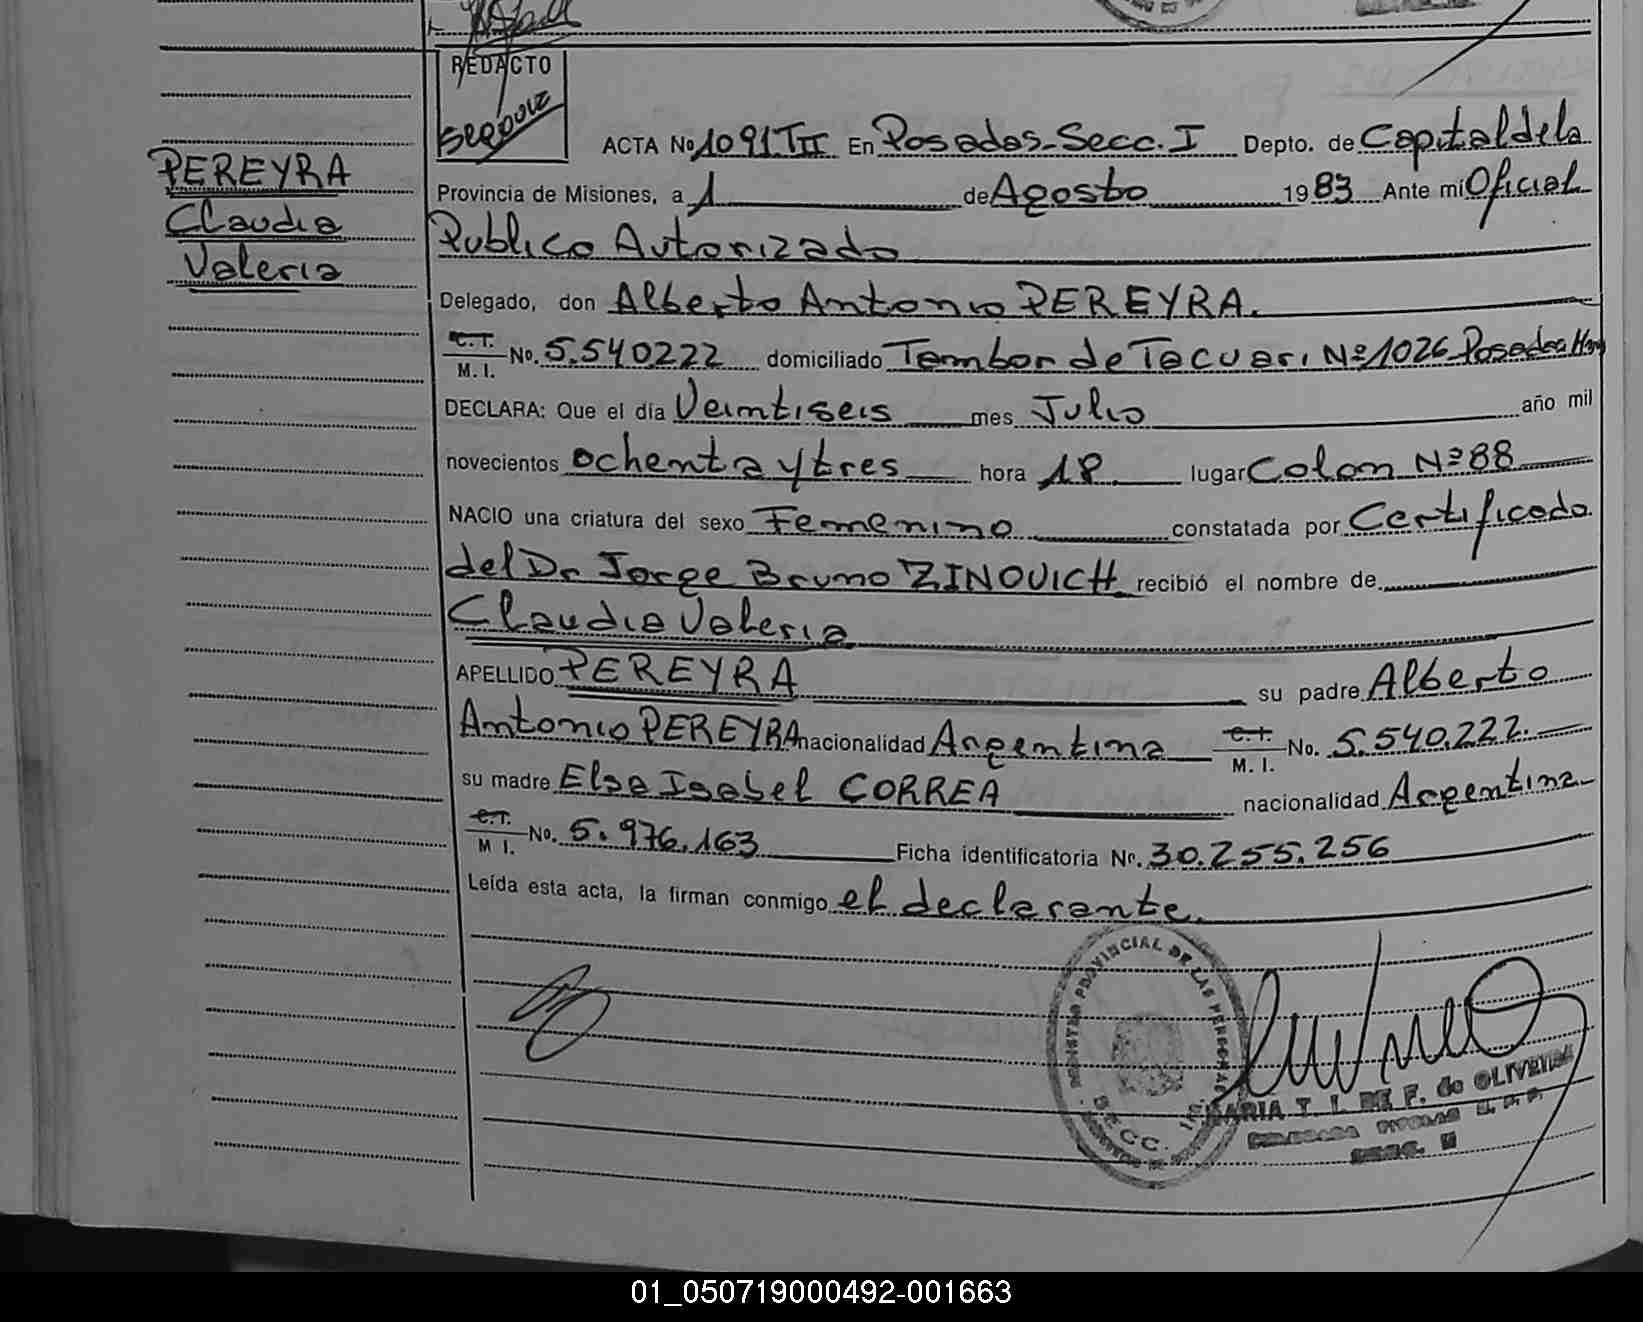 REDACTO
ACTA No 1091 T II En Posadas-Secc. I Depto. de Capital de la
PEREYRA
Claudia
Valeria
Provincia de Misiones, a 1 de Agosto 1983 Ante mi Oficial
Publico Autorizado
Delegado, don Alberto Antonio PEREYRA.
C.I. M. I. No. 5.540222 domiciliado Tambor de Tacuari Nº 1026 Posadas
DECLARA: Que el día Veintiseis mes Julio año mil
novecientos ochenta y tres hora 18 lugar Colon Nº 88
NACIO una criatura del sexo Femenino constatada por Certificado
del Dr Jorge Bruno ZINOVICH recibió el nombre de
Claudia Valeria
APELLIDO PEREYRA su padre Alberto
Antonio PEREYRA nacionalidad Argentina C.I. M. I. No. 5.540.222.
su madre Elsa Isabel CORREA nacionalidad Argentina
C.I. M I. No. 5.976.163 Ficha identificatoria No. 30.255.256
Leída esta acta, la firman conmigo el declarante.
REGISTRO PROVINCIAL DE LAS PERSONAS
SECC.
MARIA T. I. DE F. de OLIVEIRA
01_050719000492-001663